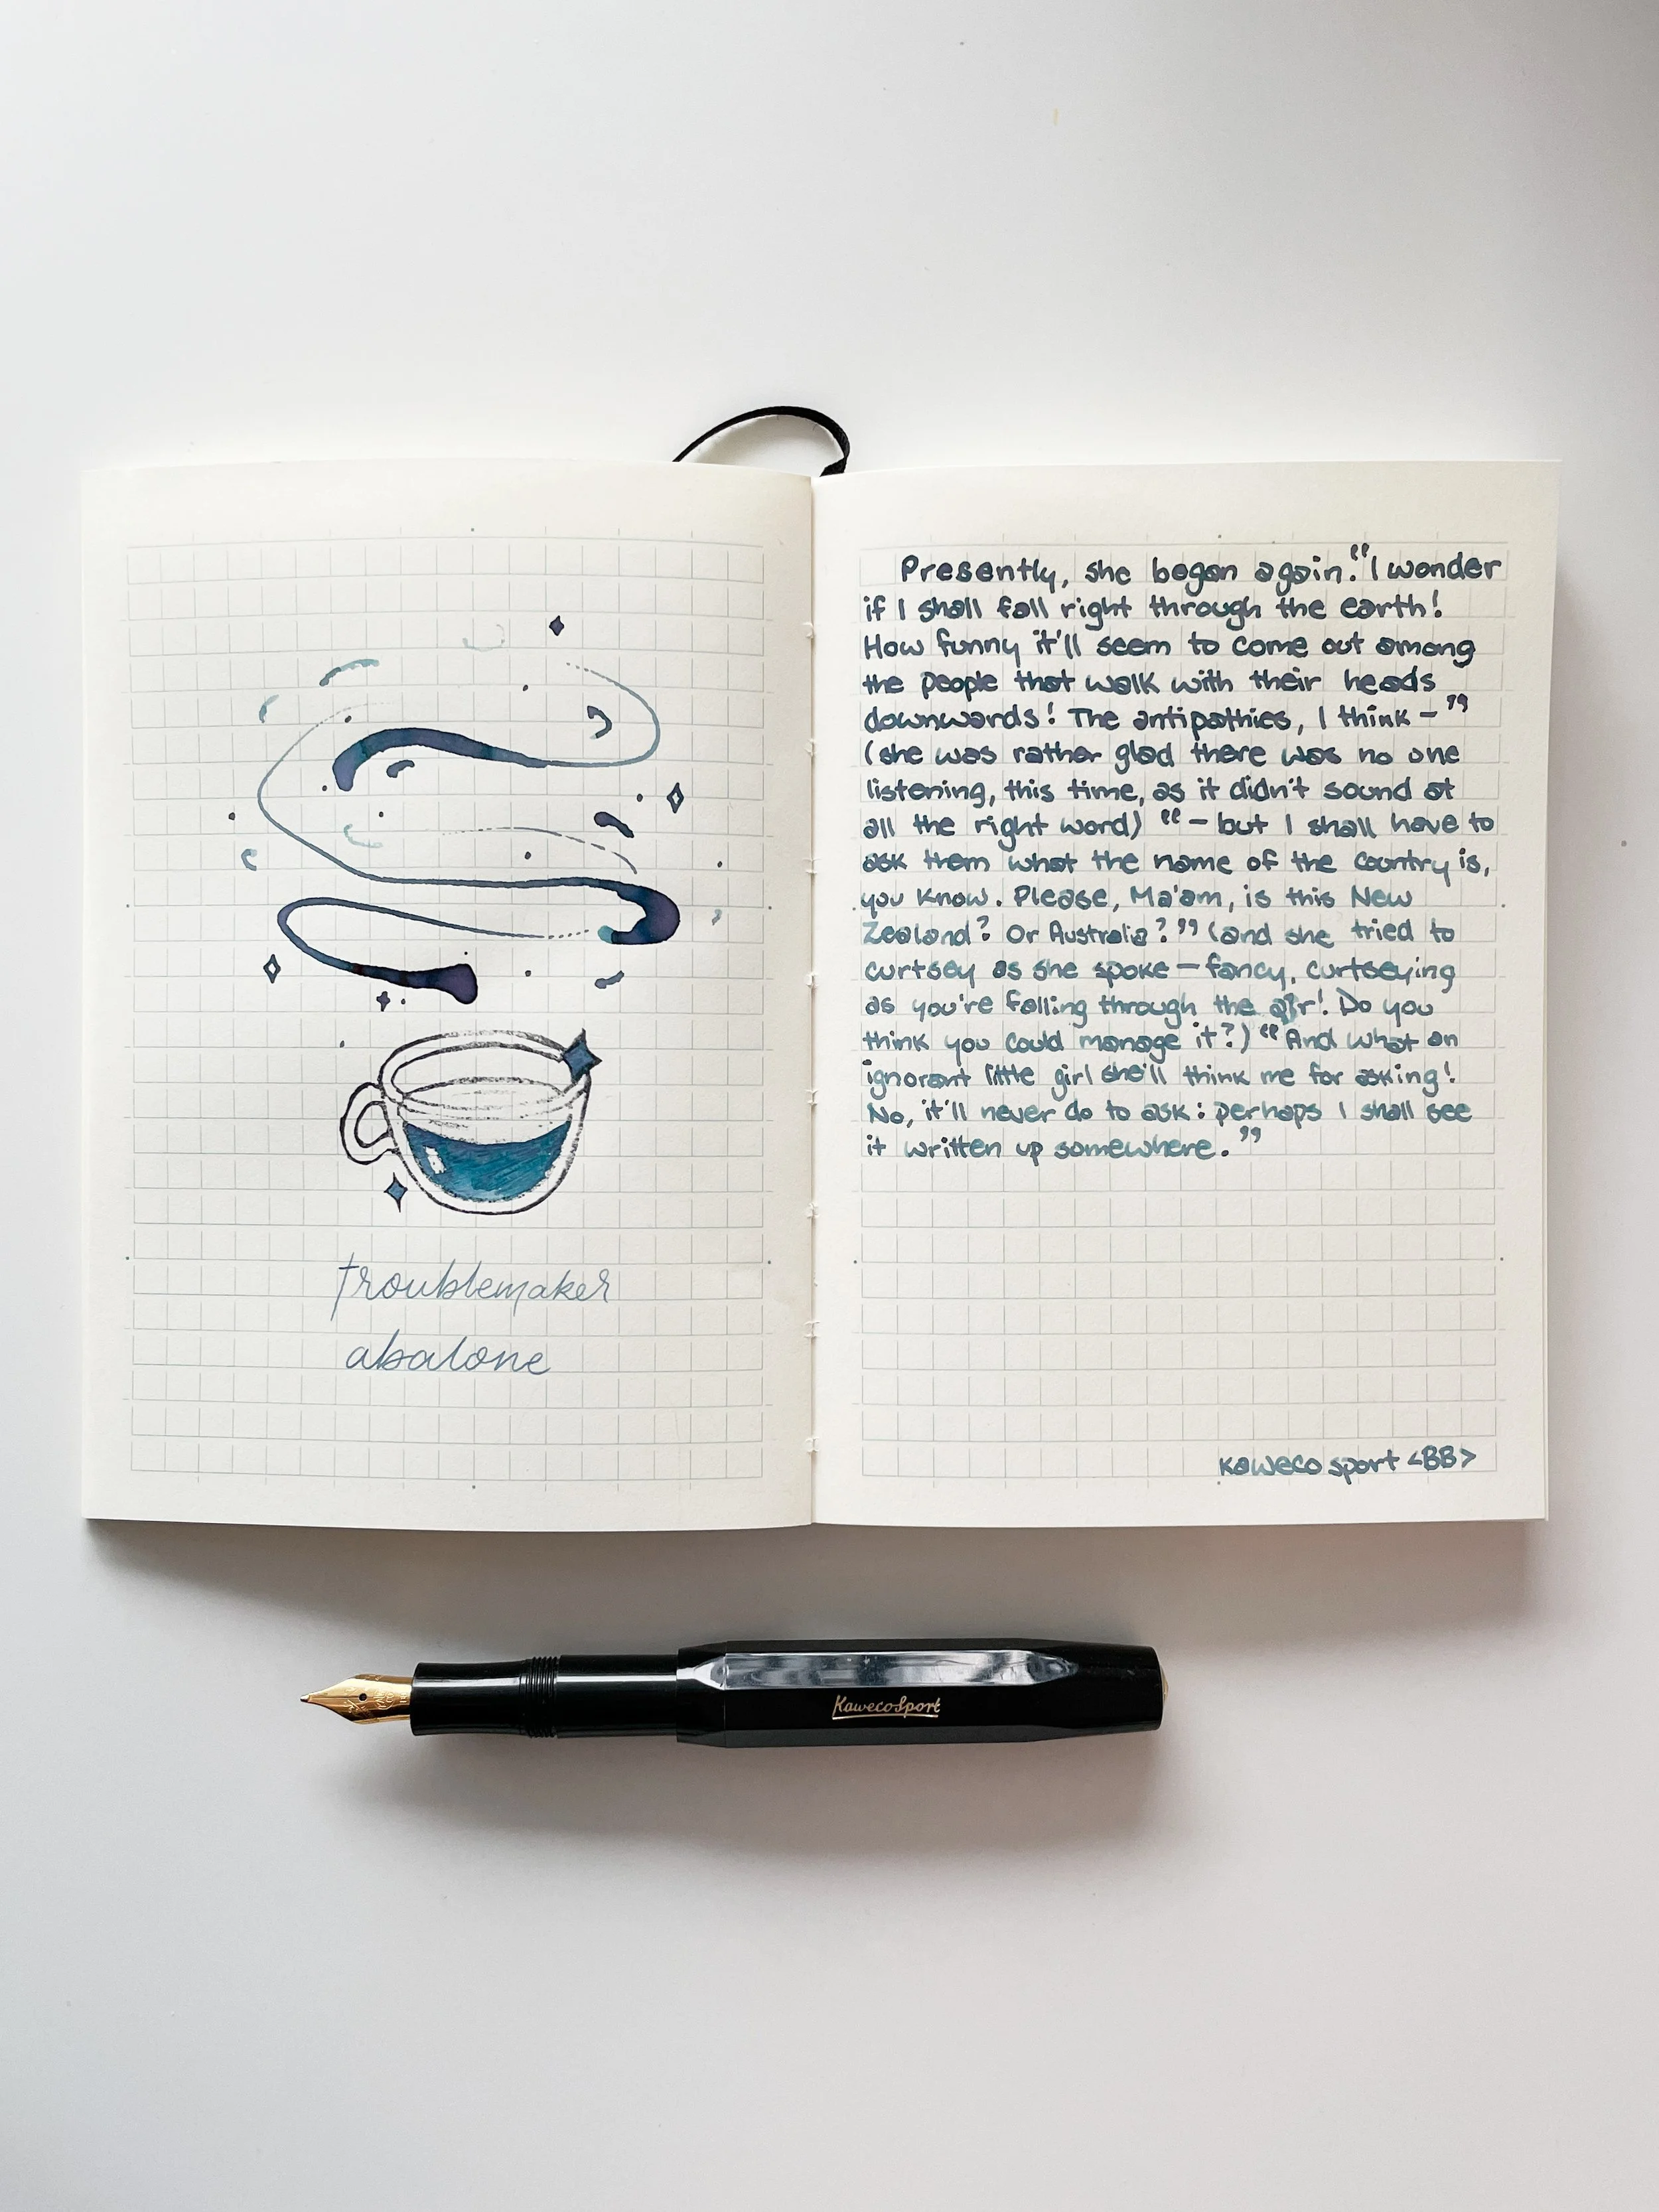 troublemaker
abalone
Presently, she began again. "I wonder
if I shall fall right through the earth!
How funny it'll seem to come out among
the people that walk with their heads
downwards! The antipathies, I think – "
(she was rather glad there was no one
listening, this time, as it didn't sound at
all the right word) " – but I shall have to
ask them what the name of the country is,
you know. Please, Ma'am, is this New
Zealand? Or Australia?" (and she tried to
curtsey as she spoke – fancy, curtseying
as you're falling through the air! Do you
think you could manage it?) "And what an
ignorant little girl she'll think me for asking!
No, it'll never do to ask: perhaps I shall see
it written up somewhere."
Kaweco sport <BB>
KawecoSport